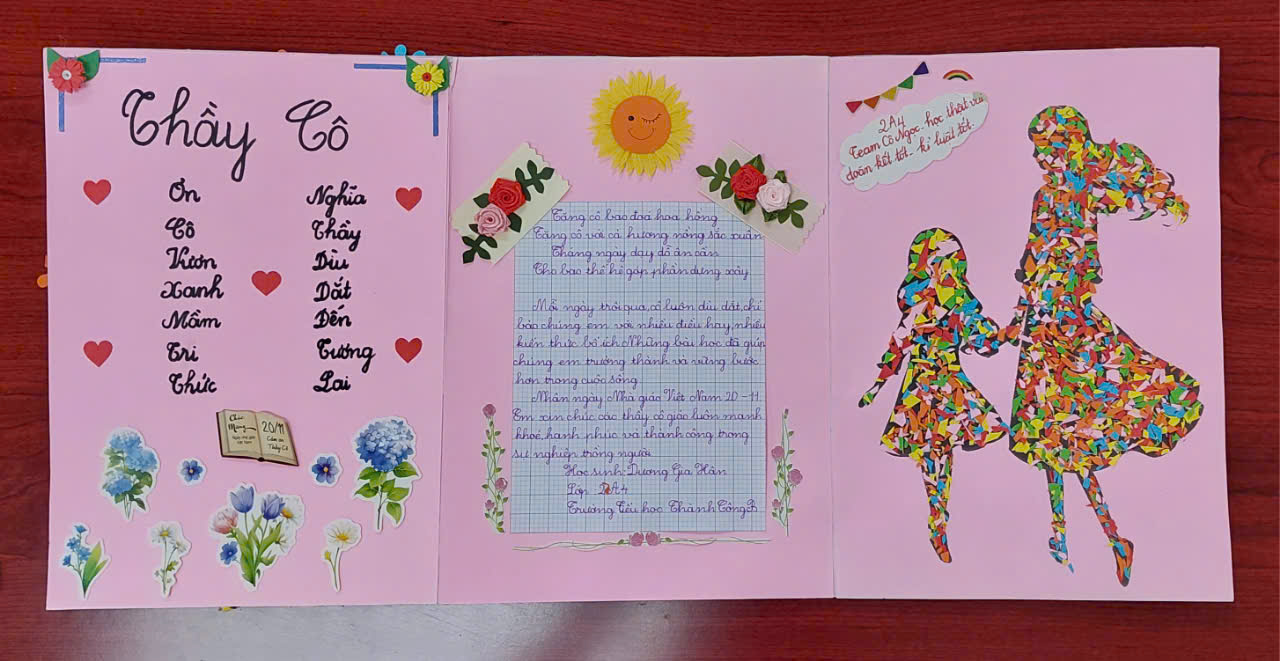 Thầy Cô
Ơn Nghĩa
Cô Thầy
Vươn Dìu
Xanh Dắt
Mầm Đến
Tri Tương
Thức Lai
Chào
Mừng
Ngày nhà giáo
Việt Nam
20/11
Cảm ơn
Thầy Cô
Tặng cô bao đoá hoa hồng
Tặng cô với cả hương nồng sắc xuân
Tháng ngày dạy dỗ ân cần
Cho bao thế hệ góp phần dựng xây
Mỗi ngày trôi qua, cô luôn dìu dắt, chỉ
bảo chúng em với nhiều điều hay, nhiều
kiến thức bổ ích. Những bài học đã giúp
chúng em trưởng thành và vững bước
hơn trong cuộc sống
Nhân ngày Nhà giáo Việt Nam 20-11.
Em xin chúc các thầy cô giáo luôn mạnh
khoẻ, hạnh phúc và thành công trong
sự nghiệp trồng người
Học sinh: Dương Gia Hân
Lớp 2A4
Trường Tiểu học Thành Công B
2A4
Team Cô Ngọc - học thật vui
đoàn kết tốt - kỉ luật tốt.